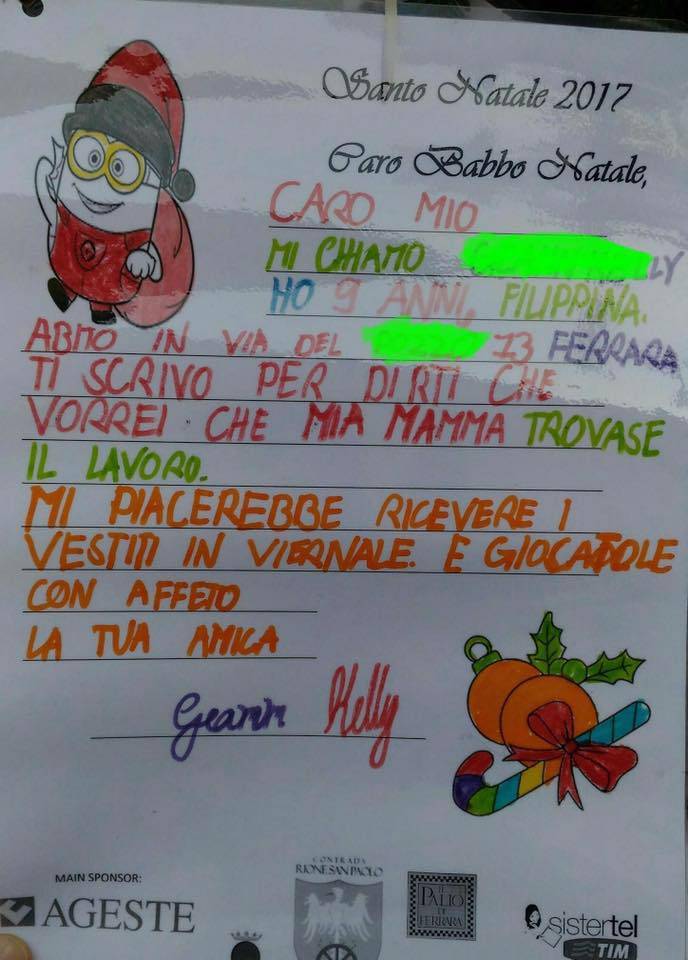 Santo Natale 2017
Caro Babbo Natale,
CARO MIO
MI CHIAMO
HO 9 ANNI, FILIPPINA.
ABITO IN VIA DEL 13 FERRARA
TI SCRIVO PER DIRTI CHE
VORREI CHE MIA MAMMA TROVASE
IL LAVORO.
MI PIACEREBBE RICEVERE I
VESTITI IN VIERNALE. E GIOCATOLE
CON AFFETO
LA TUA AMICA
Kelly
MAIN SPONSOR:
AGESTE
CONTRADA
RIONE SAN PAOLO
IL
PALIO
DI
FERRARA
sistertel
TIM